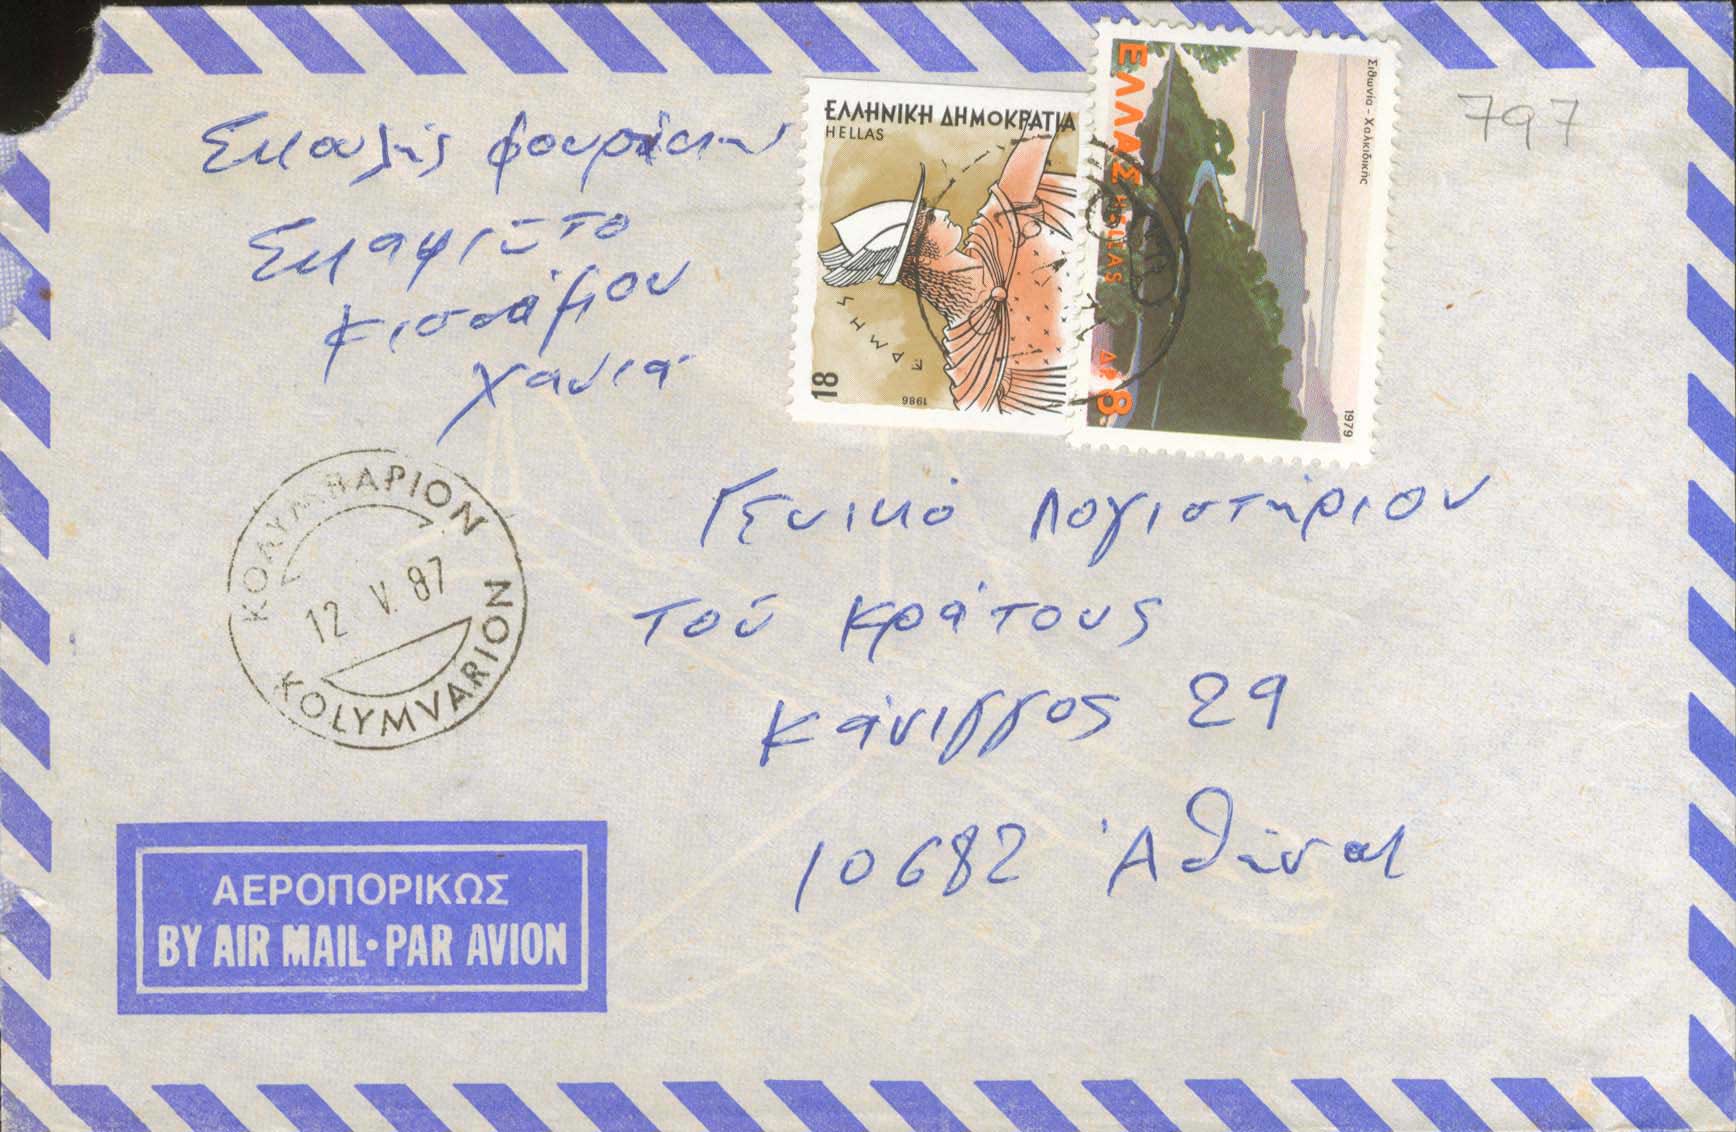 797
ΕΛΛΗΝΙΚΗ ΔΗΜΟΚΡΑΤΙΑ
HELLAS
ΕΡΜΗΣ
18
1986
ΕΛΛΑΣ HELLAS
Δρ. 8
Σιθωνία - Χαλκιδικής
1979
Κισσάμου
Χανιά
ΚΟΛΥΜΒΑΡΙΟΝ
12 V. 87
KOLYMVARION
Γενικό Λογιστήριον
τού Κράτους
Κάνιγγος 29
10682 Ἀθήναι
ΑΕΡΟΠΟΡΙΚΩΣ
BY AIR MAIL • PAR AVION